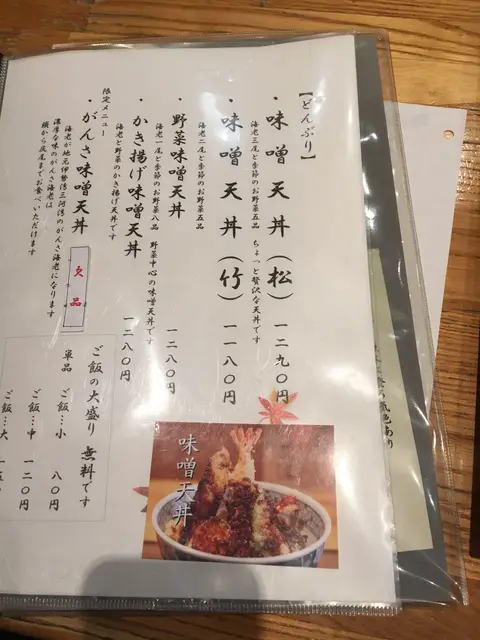 【どんぶり】
・味噌天丼(松) 一二九〇円
海老三尾と季節のお野菜五品 ちょっと贅沢な天丼です
・味噌天丼(竹) 一一八〇円
海老二尾と季節のお野菜五品
・野菜味噌天丼 一二八〇円
海老一尾と季節のお野菜八品 野菜中心の味噌天丼です
・かき揚げ味噌天丼 一二八〇円
海老と野菜のかき揚げ天丼です
限定メニュー
・がんさ味噌天丼
欠品
海老が地元伊勢湾三河湾のがんさ海老になります
濃厚な味のがんさ海老は
頭から尻尾までお食べいただけます
ご飯の大盛り 無料です
単品 ご飯…小 八〇円
ご飯…中 一二〇円
ご飯…大
味噌天丼